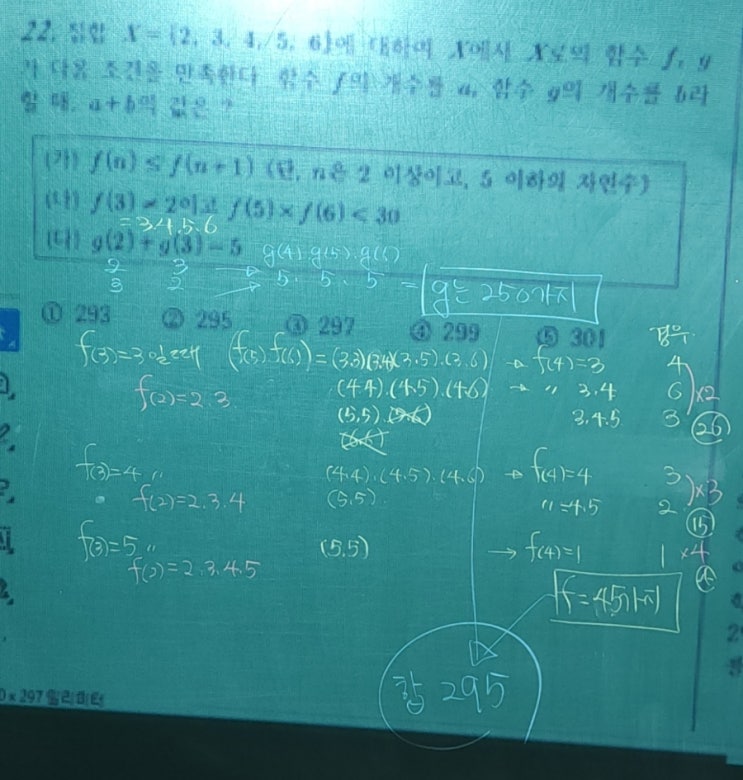 22. 집합 X = {2, 3, 4, 5, 6}에 대하여 X에서 X로의 함수 f, g
가 다음 조건을 만족한다 함수 f의 개수를 a, 함수 g의 개수를 b라
할 때. a+b의 값은 ?
(가) f(n) ≤ f(n+1) (단, n은 2 이상이고, 5 이하의 자연수)
(나) f(3) ≠ 2이고 f(5)×f(6) < 30
= 3.4.5.6
(다) g(2) + g(3) = 5 g(4).g(5).g(6)
2 3
3 2 5. 5. 5 = g는 250가지
① 293 ② 295 ③ 297 ④ 299 ⑤ 301
f(3)=3일때 (f(5).f(6)) = (3.3)(3.4)(3.5).(3.6) → f(4)=3 4
f(2)=2.3 (4.4).(4.5).(4.6) → " 3.4 6 ×2
(5.5).(5.6) 3.4.5 3 26
(6.6)
f(3)=4 " (4.4).(4.5).(4.6) → f(4)=4 3 ×3
f(2)=2.3.4 (5.5) " =4.5 2 15
f(3)=5 " (5.5) → f(4)=1 1 ×4
f(2)=2.3.4.5 4
f=45가지
합 295
0 x 297 밀리미터